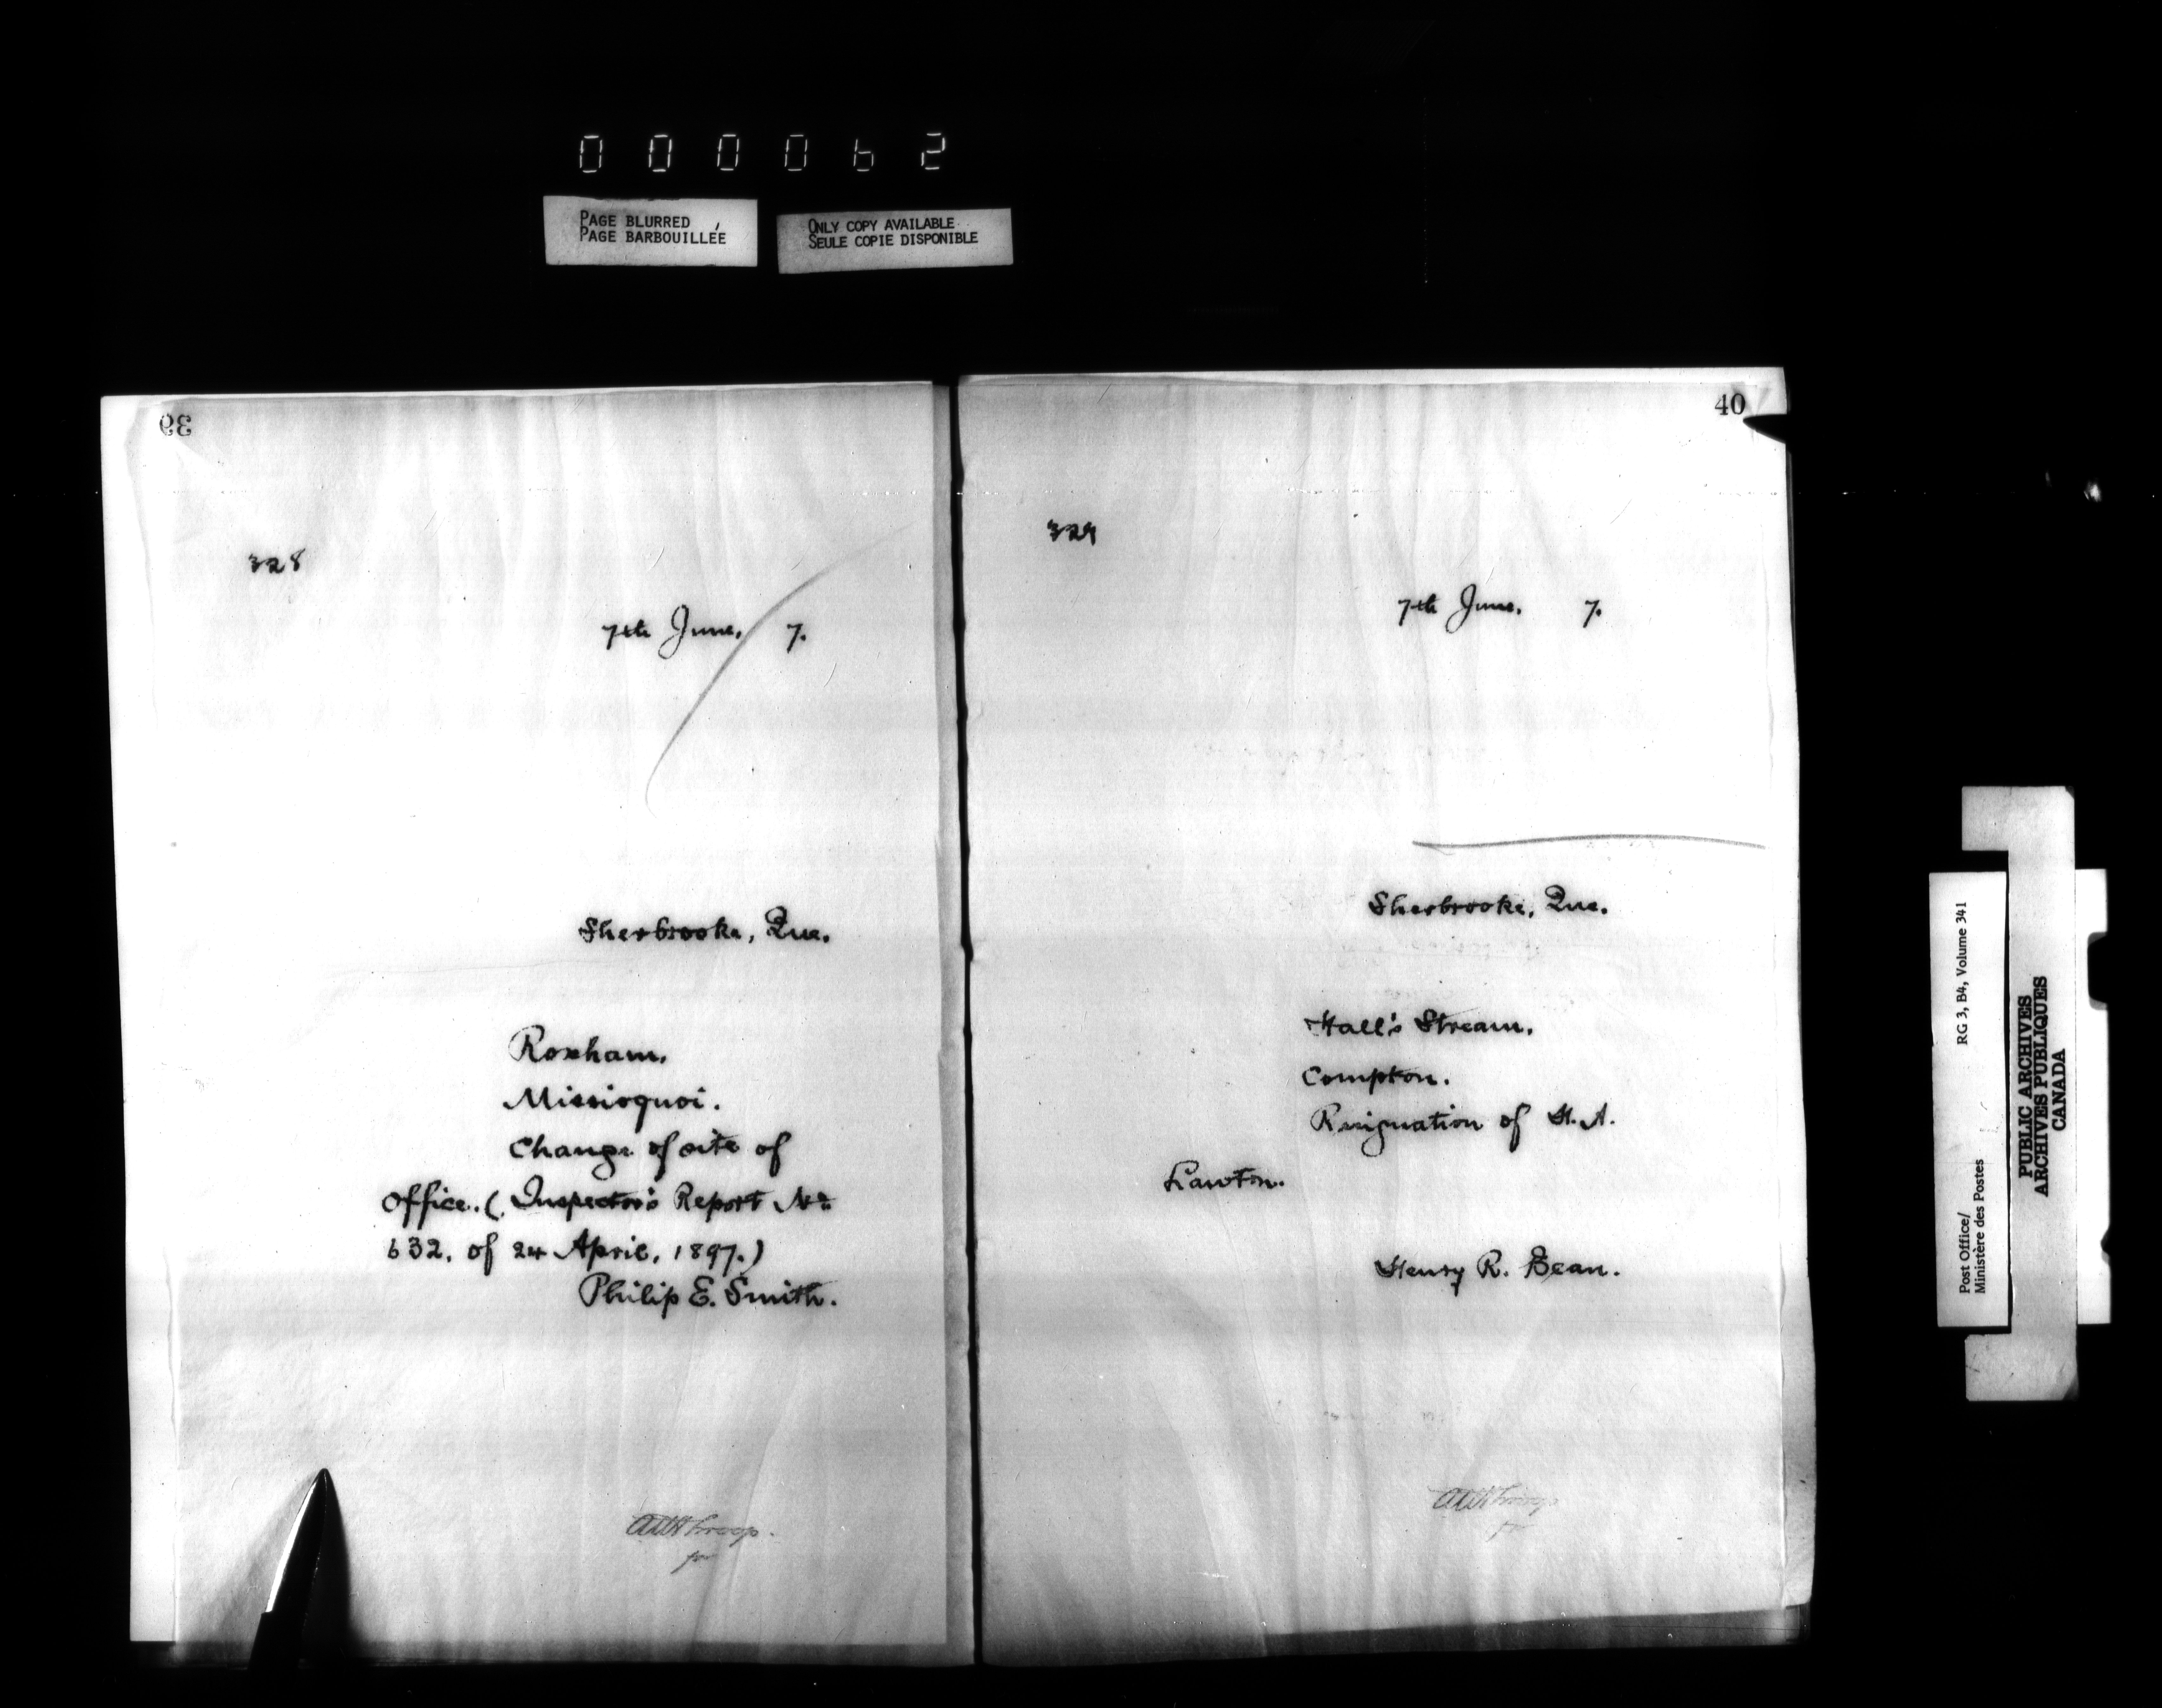 000062
PAGE BLURRED
PAGE BARBOUILLÉE
ONLY COPY AVAILABLE
SEULE COPIE DISPONIBLE
39
328
7th June, 7.
Sherbrooke, Que.
Roxham.
Missisquoi.
Change of site of
Office. (Inspector's Report No
632. of 24 April, 1897.)
Philip E. Smith.
40
329
7th June. 7.
Sherbrooke, Que.
Hall's Stream.
Compton.
Resignation of H. A.
Lawton.
Henry R. Bean.
Post Office/
Ministère des Postes
RG 3, B4, Volume 341
PUBLIC ARCHIVES
ARCHIVES PUBLIQUES
CANADA